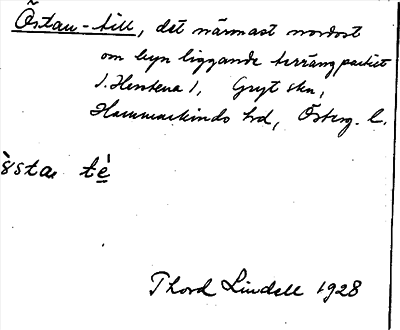 Östan-till, det närmast nordost
om byn liggande terrängpartiet
i Hersterna 1, Gryt skn,
Hammarkinds hd, Österg. l.
östa té
Thord Lindell 1928